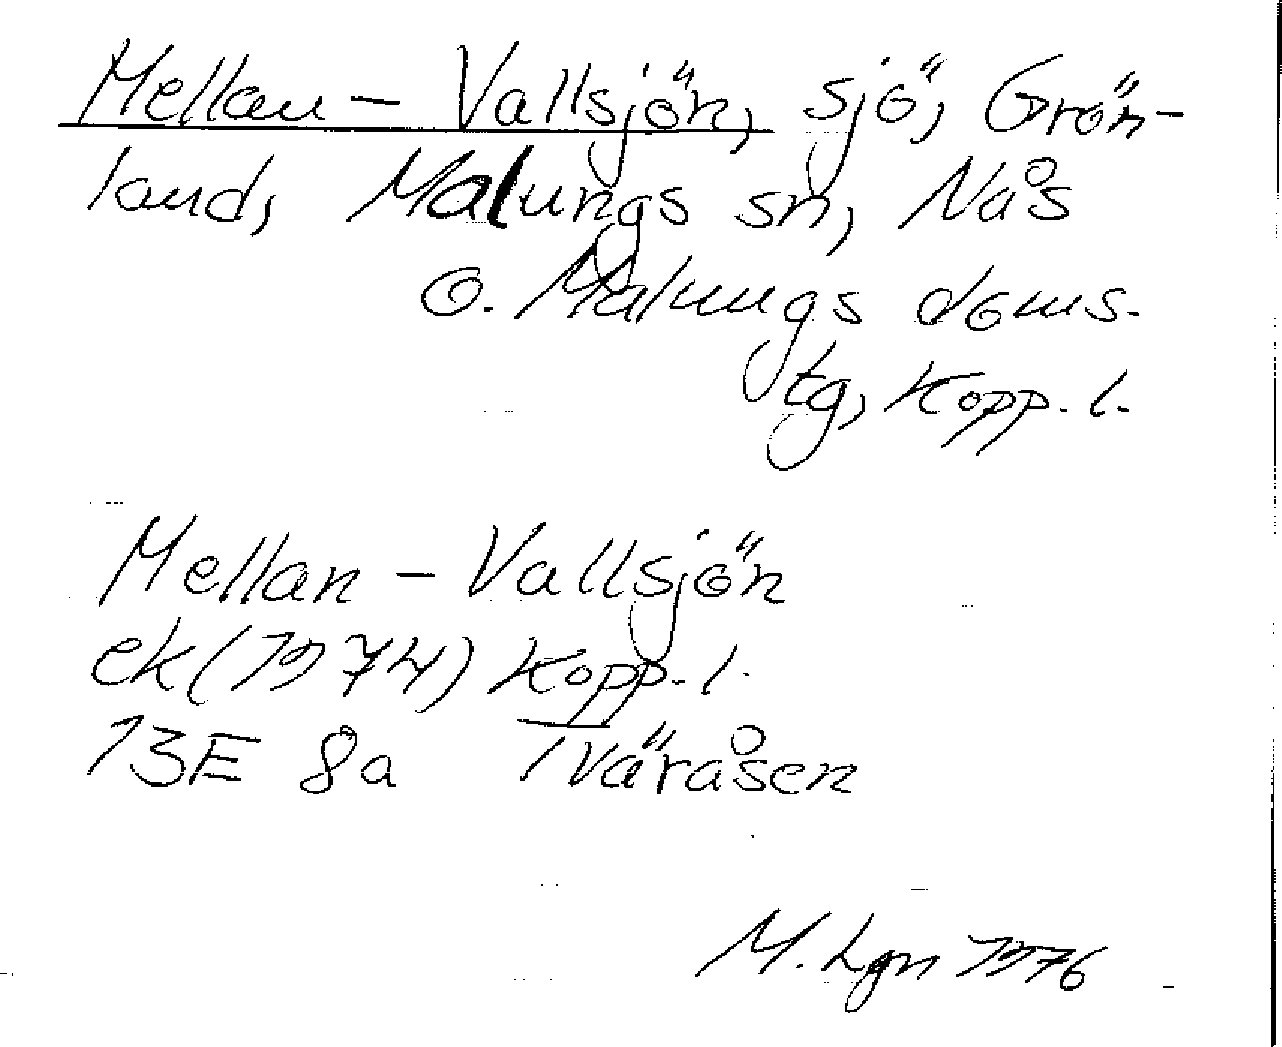 Mellan-Vallsjön, sjö, Grön-
land, Malungs sn, Nås
o. Malungs doms.
tg, Kopp. l.
Mellan-Vallsjön
ek (1974) Kopp. l.
13E 8a Tväråsen
M. Lgn 1976